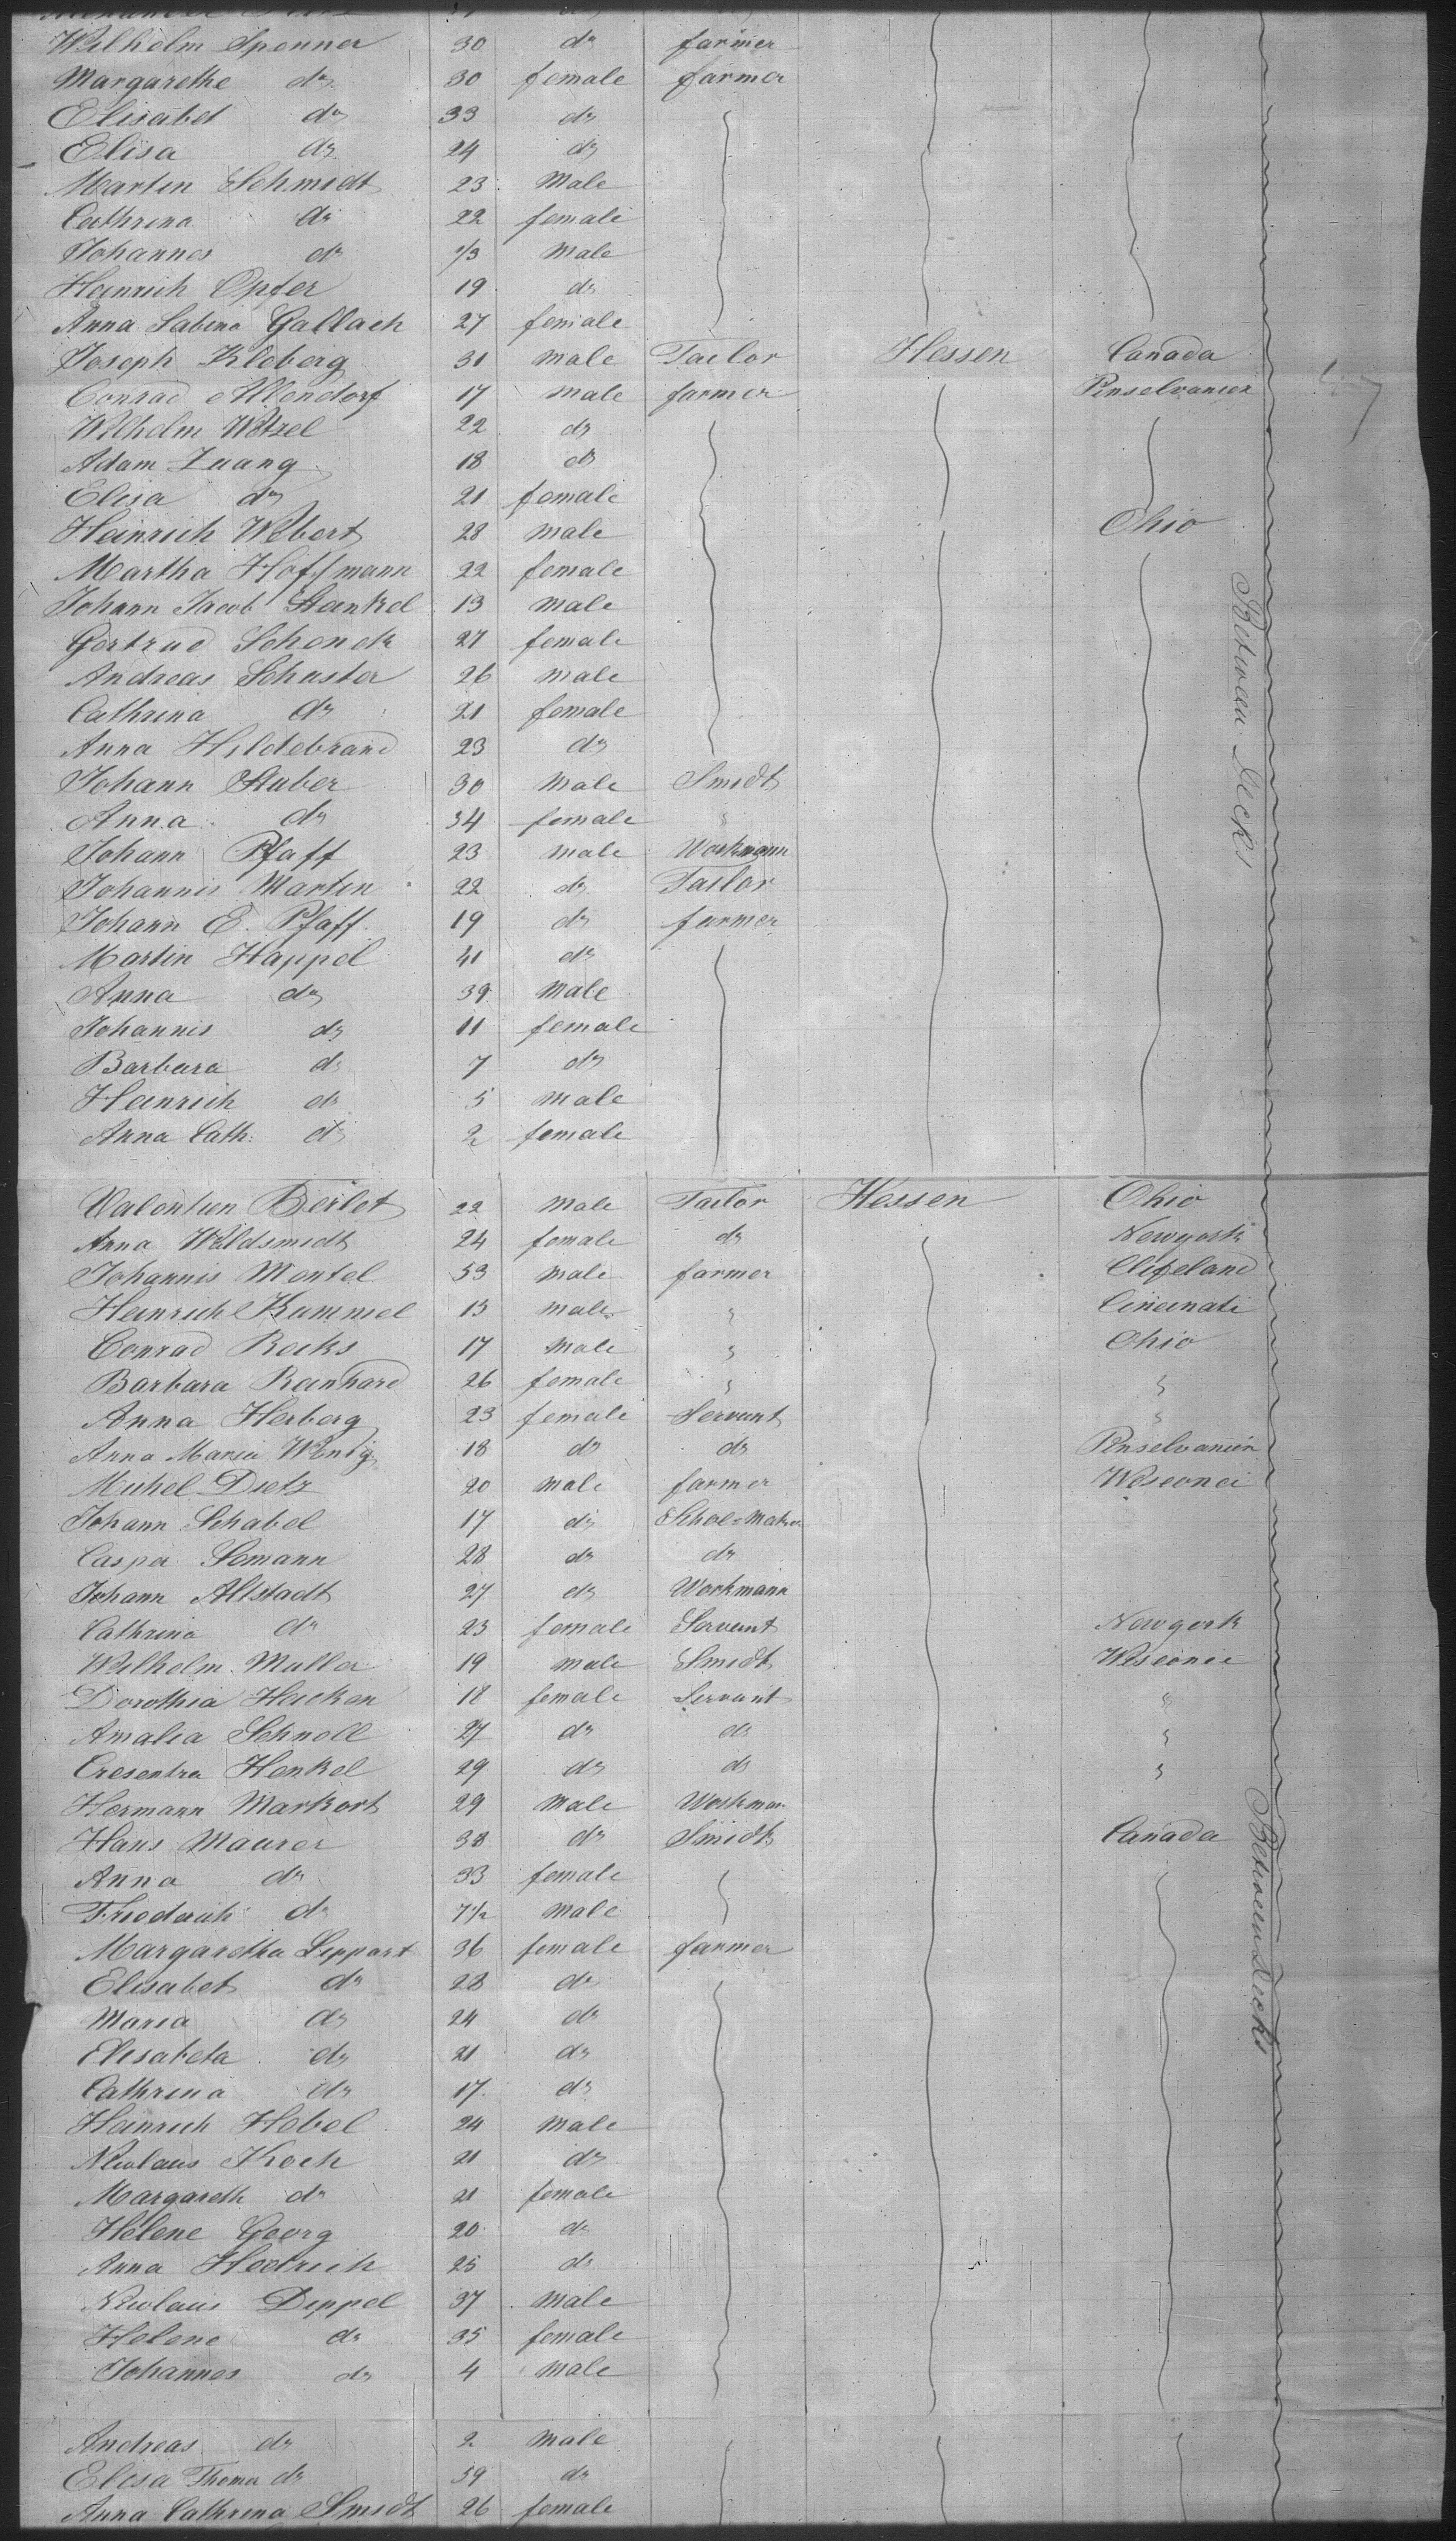 Wilhelm Sponner 30 do farmer
Margarethe do 30 female farmer
Elisabet do 33 do
Elisa do 24 do
Martin Schmidt 23 Male
Cathrina do 22 female
Johannes do 1/3 Male
Heinrich Opfer 19 do
Anna Sabina Gallach 27 female
Joseph Kleberg 31 male Tailor Hessen Canada
Conrad Allendorf 17 male farmer Penselvanien
Wilhelm Wetzel 22 do
Adam Luang 18 do
Elisa do 21 female
Heinrich Webert 28 male Ohio
Martha Hoffmann 22 female
Johann Jacob Stankel 13 male
Gertrud Schenck 27 female
Andreas Schuster 26 male
Cathrina do 21 female
Anna Hildebrand 23 do
Between Decks
Johann Stuber 30 Male Smidt
Anna do 34 female "
Johann Pfaff 23 male Workmann
Johannis Martin 22 do Tailor
Johann E. Pfaff 19 do farmer
Martin Happel 41 do
Anna do 39 Male
Johannis do 11 female
Barbara do 7 do
Heinrich do 5 male
Anna Cath: do 2 female
Valentien Berlet 22 Male Tailor Hessen Ohio
Anna Weldsmidt 24 female do Newyork
Johannis Montel 53 male farmer Clifeland
Heinrich Kummel 13 male " Cincinati
Conrad Recks 17 Male " Ohio
Barbara Reinhard 26 female " "
Anna Herberg 23 female Servant "
Anna Maria Wenig 18 do do Penselvanien
Michel Dietz 20 male farmer Wisconci
Johann Schabel 17 do Schoe=Maker
Casper Lomann 28 do do
Johann Altstadt 27 do Workmann
Cathrina do 23 female Servant Newyork
Wilhelm Muller 19 male Smidt Wisconci
Dorothia Hacken 18 female Servant "
Amalia Schnell 27 do do "
Cresentra Henkel 29 do do "
Hermann Markort 29 Male Workman
Hans Maurer 38 do Smidt Canada
Between Decks
Anna do 33 female
Friederich do 7 1/2 Male
Margaretha Leppart 36 female farmer
Elisabet do 28 do
Maria do 24 do
Elisabeta do 21 do
Cathrina do 17 do
Heinrich Hobel 24 Male
Nicolaus Koch 21 do
Margareth do 21 female
Helene Georg 20 do
Anna Hedrich 25 do
Nicolaus Deppel 37 Male
Helene do 35 female
Johannes do 4 Male
Andreas do 2 Male
Elisa Thoma do 59 do
Anna Cathrina Smidt 26 female